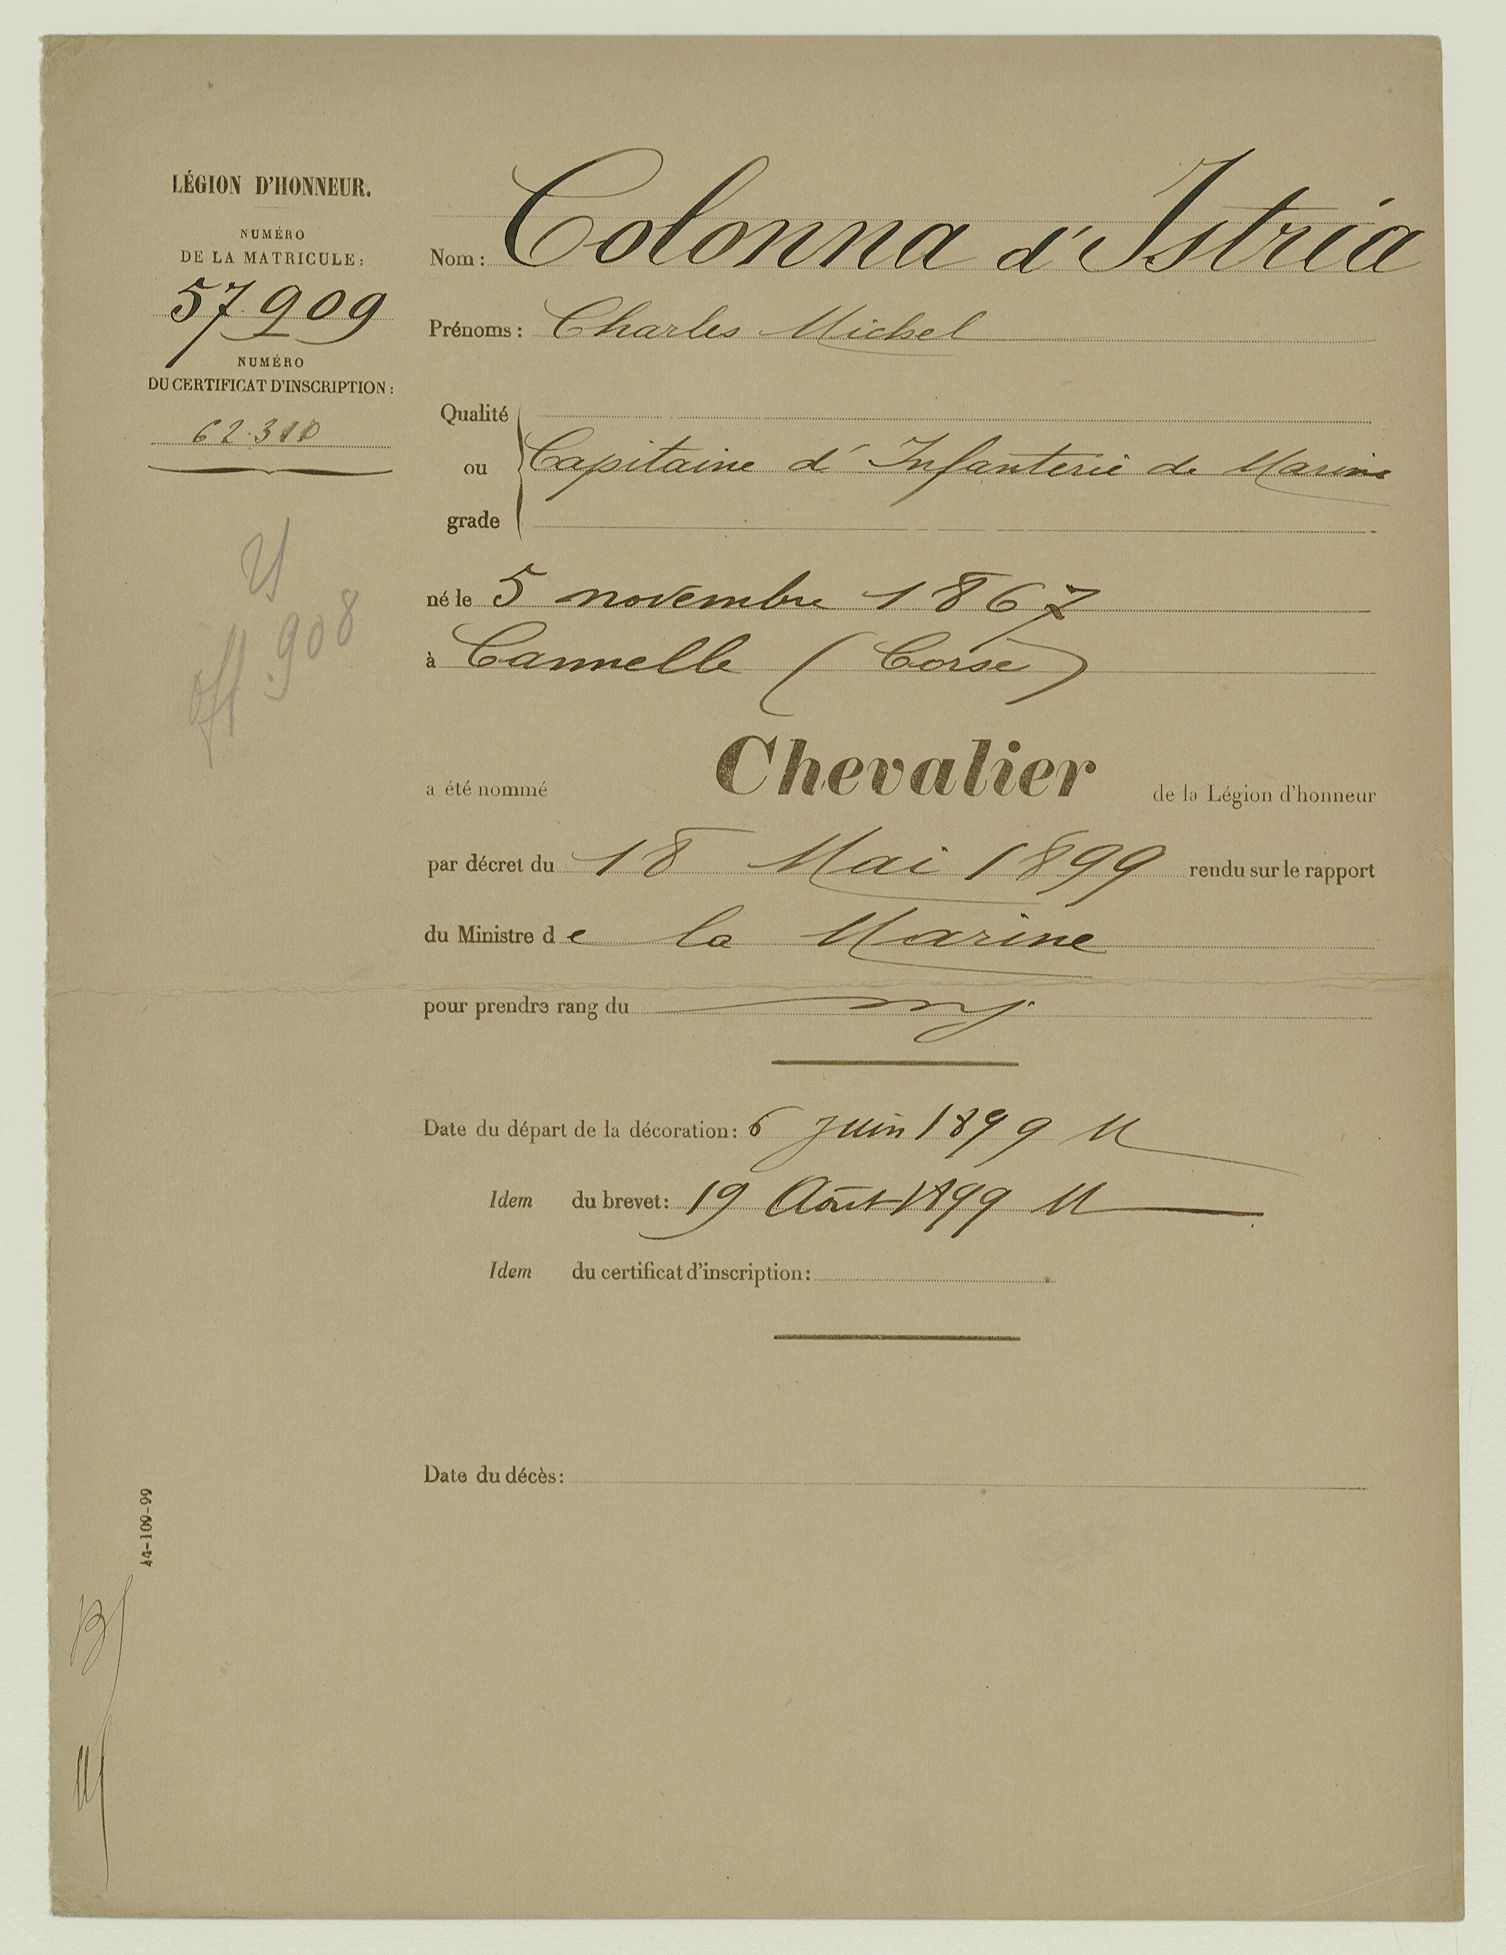 LÉGION D'HONNEUR.
NUMÉRO
DE LA MATRICULE:
57.909
NUMÉRO
DU CERTIFICAT D'INSCRIPTION:
62.310
off. 908
Nom: Colonna d'Istria
Prénoms: Charles Michel
Qualité
ou Capitaine d'Infanterie de Marine
grade
né le 5 novembre 1867
à Cannelle (Corse)
a été nommé Chevalier de la Légion d'honneur
par décret du 18 Mai 1899 rendu sur le rapport
du Ministre de la Marine
pour prendre rang du
Date du départ de la décoration: 6 Juin 1899
Idem du brevet: 19 Août 1899
Idem du certificat d'inscription:
Date du décès:
44-109-99